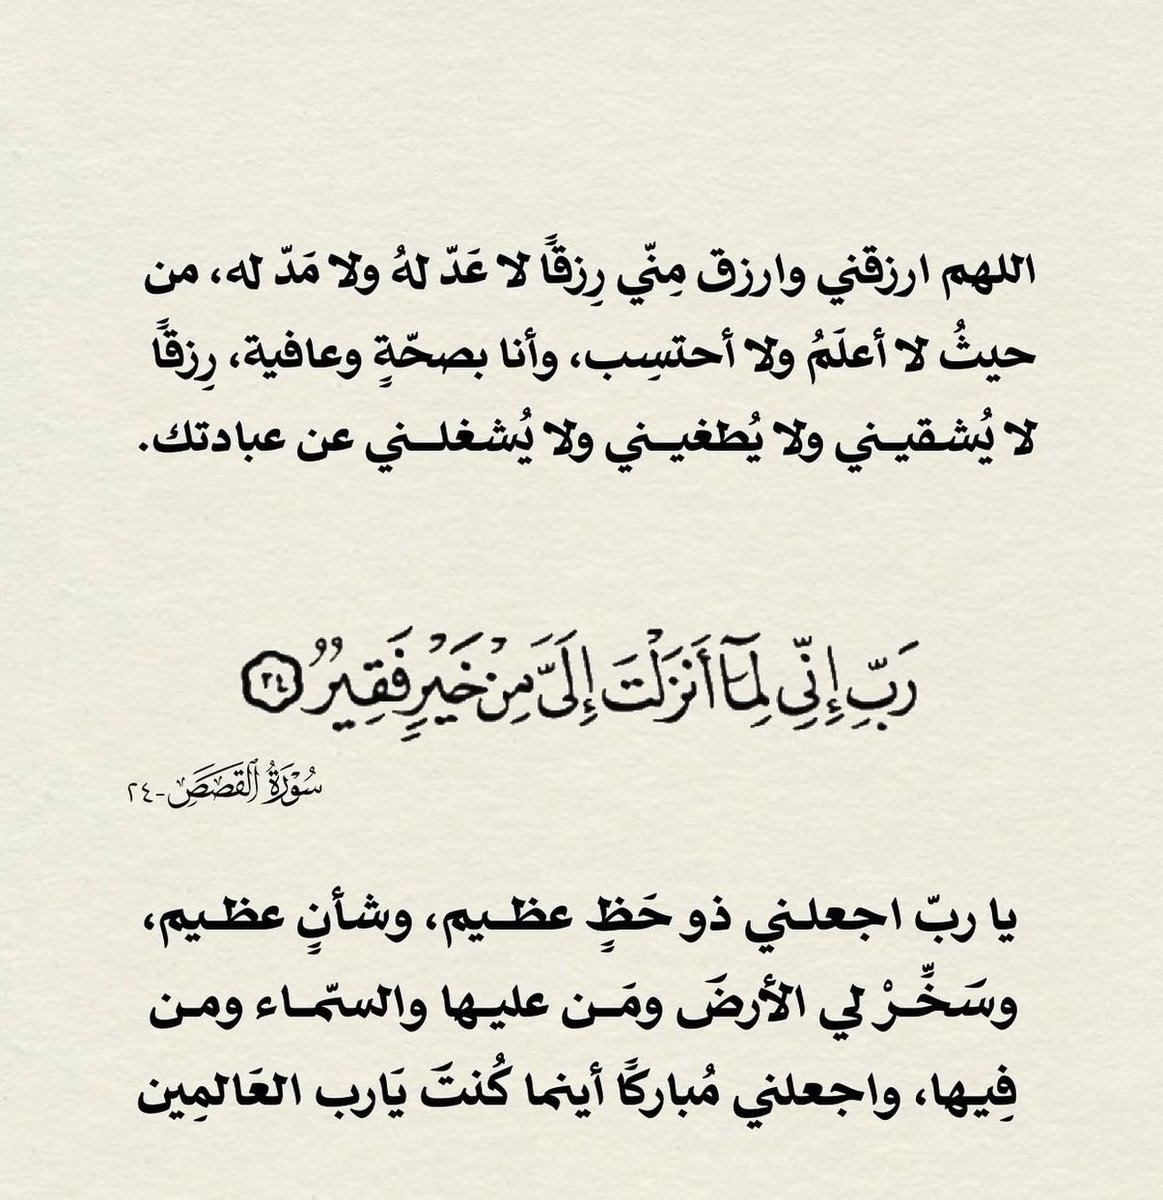 اللهم ارزقني وارزق مِنّي رِزقًا لا عَدّ لهُ ولا مَدّ له، من
حيثُ لا أعلَمُ ولا أحتسِب، وأنا بصحّةٍ وعافية، رِزقًا
لا يُشقيـني ولا يُطغيـني ولا يُشغلـني عن عبادتك.
رَبِّ إِنِّي لِمَآ أَنزَلۡتَ إِلَيَّ مِنۡ خَيۡرٖ فَقِيرٞ ٢٤
سُورَةُ ٱلقَصَصِ-٢٤
يا ربّ اجعلـني ذو حَظٍ عظـيم، وشأنٍ عظـيم،
وسَخِّـرْ لي الأرضَ ومَـن عليـها والسّمـاء ومـن
فِيـها، واجعلني مُباركًا أينما كُنتَ يَارب العَالمِين